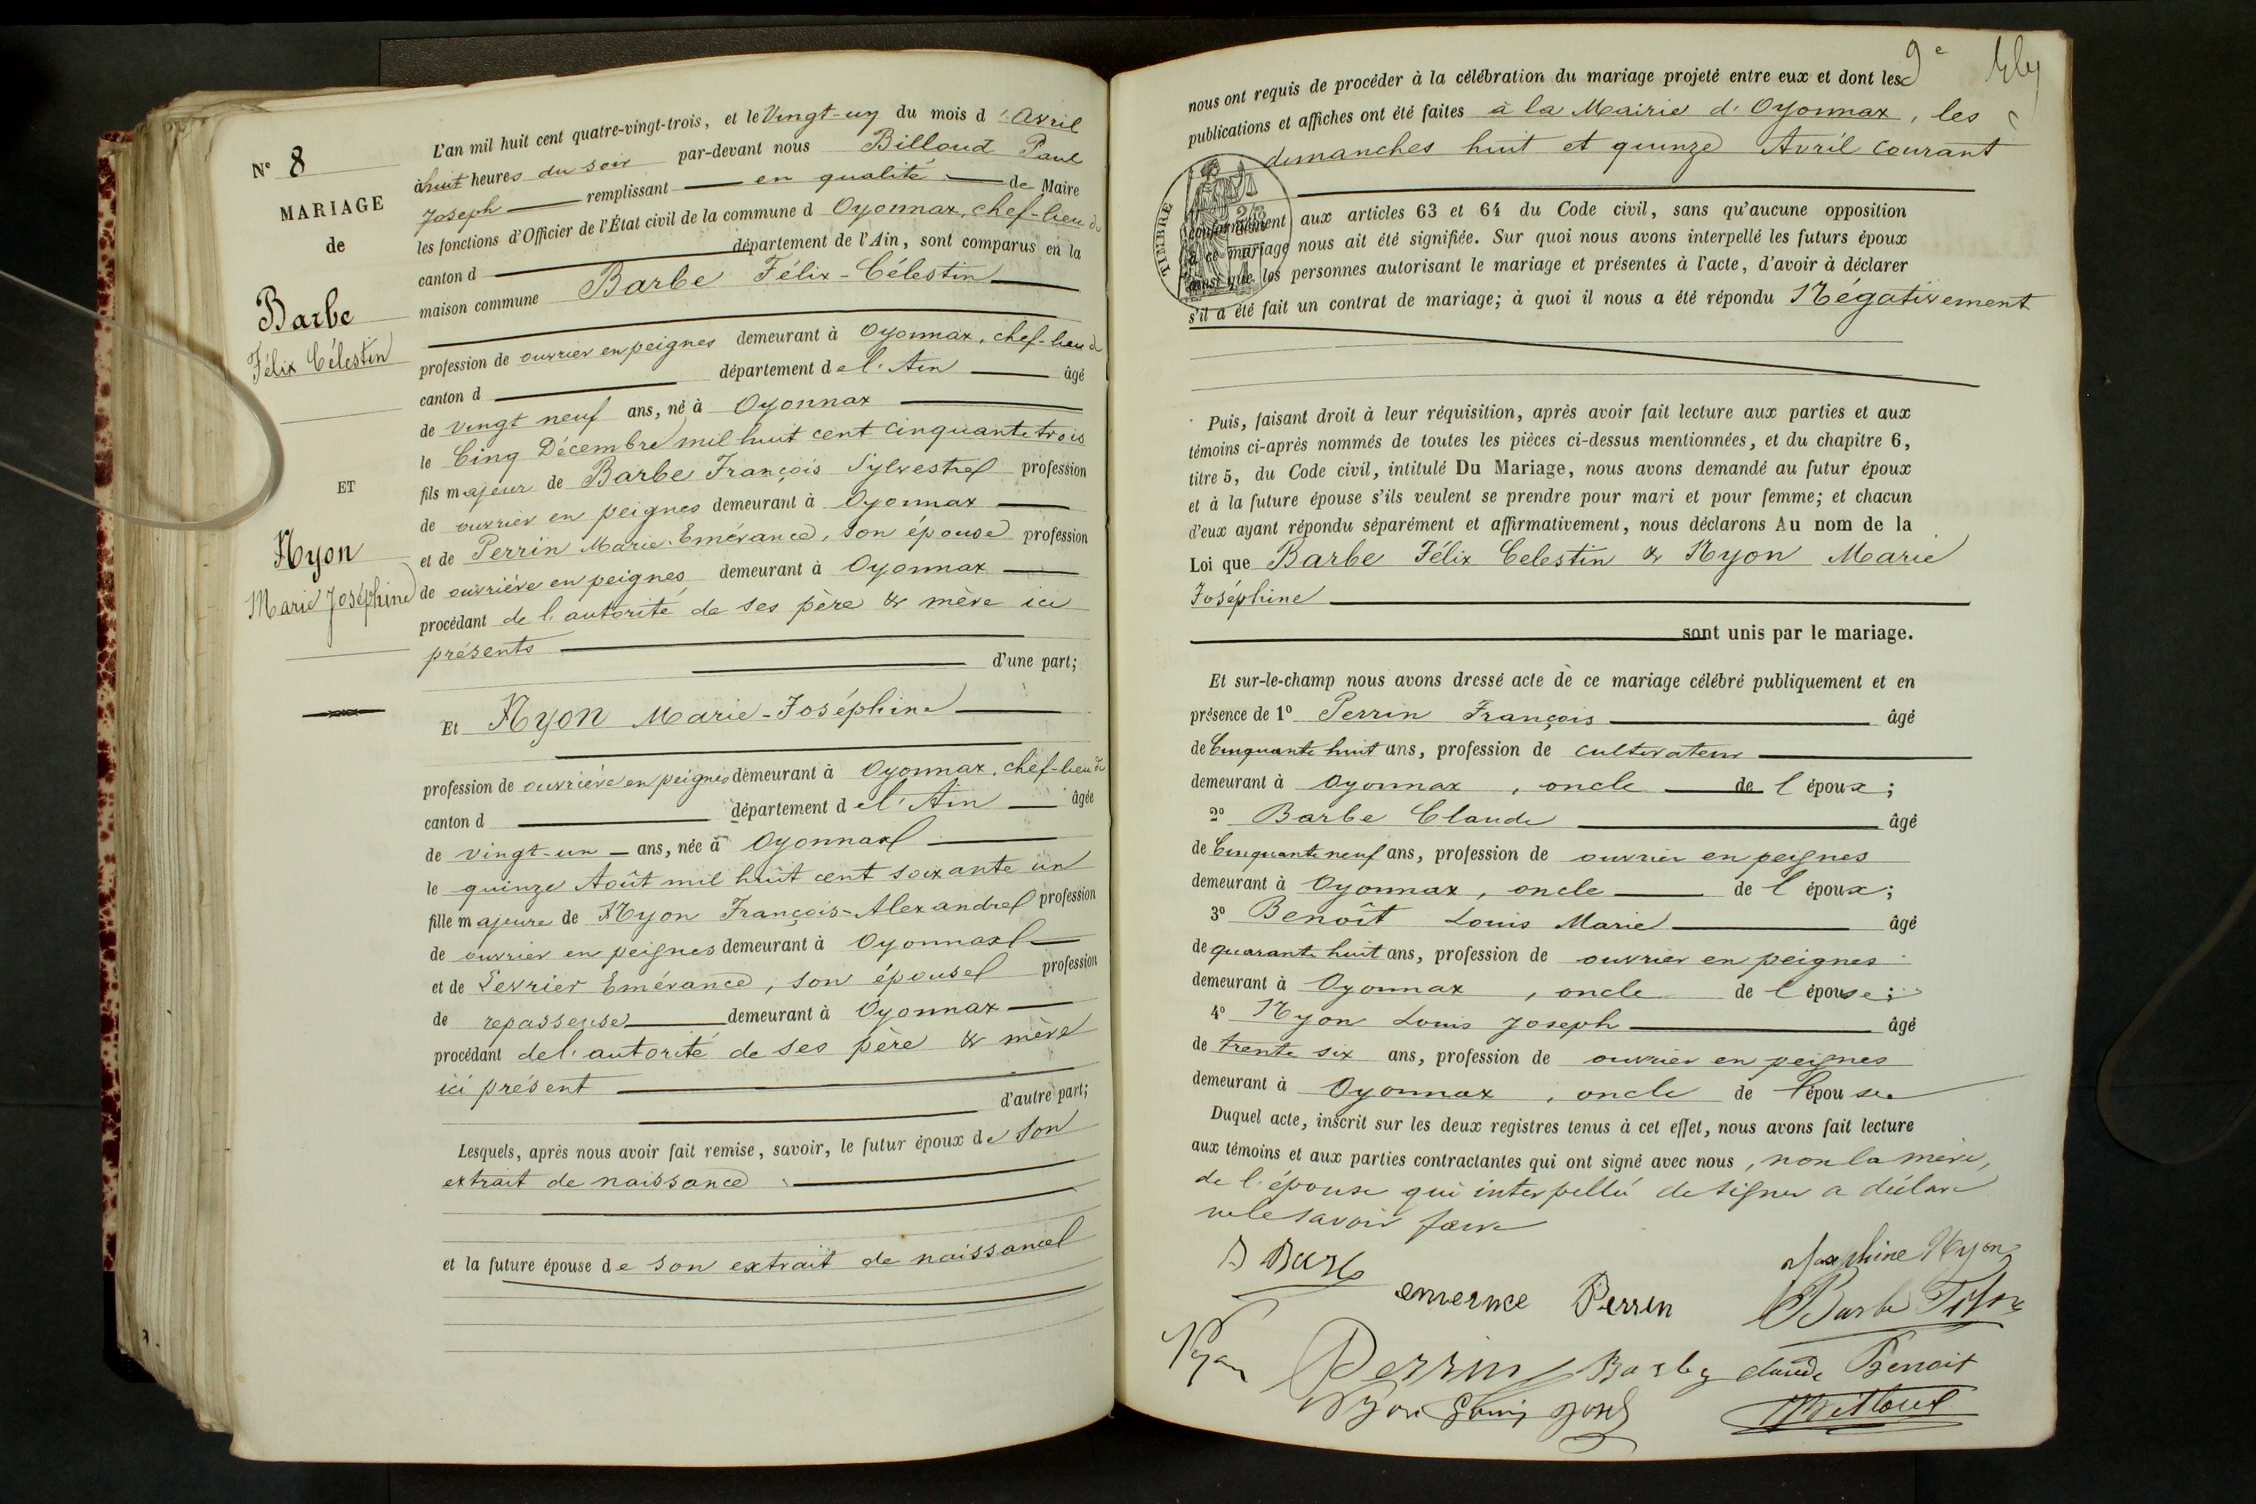 N° 8
MARIAGE
de
Barbe
Félix Célestin
ET
Nyon
Marie Joséphine
L'an mil huit cent quatre-vingt-trois, et le Vingt-un du mois d'Avril
à huit heures du soir par-devant nous Billoud Paul
Joseph remplissant en qualité de Maire
les fonctions d'Officier de l'État civil de la commune d Oyonnax, chef-lieu de
canton d département de l'Ain, sont comparus en la
maison commune Barbe Félix-Célestin
profession de ouvrier en peignes demeurant à Oyonnax, chef-lieu de
canton d département de l'Ain âgé
de vingt neuf ans, né à Oyonnax
le Cinq Décembre mil huit cent cinquante trois
fils majeur de Barbe François Sylvestre profession
de ouvrier en peignes demeurant à Oyonnax
et de Perrin Marie-Emérance, son épouse profession
de ouvrière en peignes demeurant à Oyonnax
procédant de l'autorité de ses père & mère ici
présents
d'une part;
Et Nyon Marie-Joséphine
profession de ouvrière en peignes demeurant à Oyonnax, chef-lieu de
canton d département de l'Ain âgée
de vingt-un ans, née à Oyonnax
le quinze Août mil huit cent soixante un
fille majeure de Nyon François-Alexandre profession
de ouvrier en peignes demeurant à Oyonnax
et de Levrier Emérance, son épouse profession
de repasseuse demeurant à Oyonnax
procédant de l'autorité de ses père & mère
ici présent
d'autre part;
Lesquels, après nous avoir fait remise, savoir, le futur époux de son
extrait de naissance
et la future épouse de son extrait de naissance
9e
nous ont requis de procéder à la célébration du mariage projeté entre eux et dont les
publications et affiches ont été faites à la Mairie d'Oyonnax, les
dimanches huit et quinze Avril courant
TIMBRE
conformément aux articles 63 et 64 du Code civil, sans qu'aucune opposition
à ce mariage nous ait été signifiée. Sur quoi nous avons interpellé les futurs époux
ainsi que les personnes autorisant le mariage et présentes à l'acte, d'avoir à déclarer
s'il a été fait un contrat de mariage; à quoi il nous a été répondu Négativement
Puis, faisant droit à leur réquisition, après avoir fait lecture aux parties et aux
témoins ci-après nommés de toutes les pièces ci-dessus mentionnées, et du chapitre 6,
titre 5, du Code civil, intitulé Du Mariage, nous avons demandé au futur époux
et à la future épouse s'ils veulent se prendre pour mari et pour femme; et chacun
d'eux ayant répondu séparément et affirmativement, nous déclarons Au nom de la
Loi que Barbe Félix Celestin & Nyon Marie
Joséphine
sont unis par le mariage.
Et sur-le-champ nous avons dressé acte de ce mariage célébré publiquement et en
présence de 1° Perrin François âgé
de Cinquante huit ans, profession de cultivateur
demeurant à Oyonnax, oncle de l'époux;
2° Barbe Claude âgé
de Cinquante neuf ans, profession de ouvrier en peignes
demeurant à Oyonnax, oncle de l'époux;
3° Benoît Louis Marie âgé
de quarante huit ans, profession de ouvrier en peignes
demeurant à Oyonnax, oncle de l'épouse;
4° Nyon Louis Joseph âgé
de trente six ans, profession de ouvrier en peignes
demeurant à Oyonnax, oncle de l'épouse
Duquel acte, inscrit sur les deux registres tenus à cet effet, nous avons fait lecture
aux témoins et aux parties contractantes qui ont signé avec nous, non la mère,
de l'épouse qui interpellée de signer a déclaré
ne le savoir faire
Josephine Nyon
emernce Perrin
Barbe
Nyon
Perrin Barbe claude Benoit
Nyon Louis Joseph
Billoud